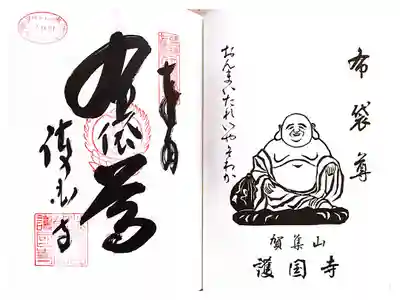 布袋尊
おんまいたれいやそわか
賀集山
護国寺
奉拝
布袋尊
護国寺